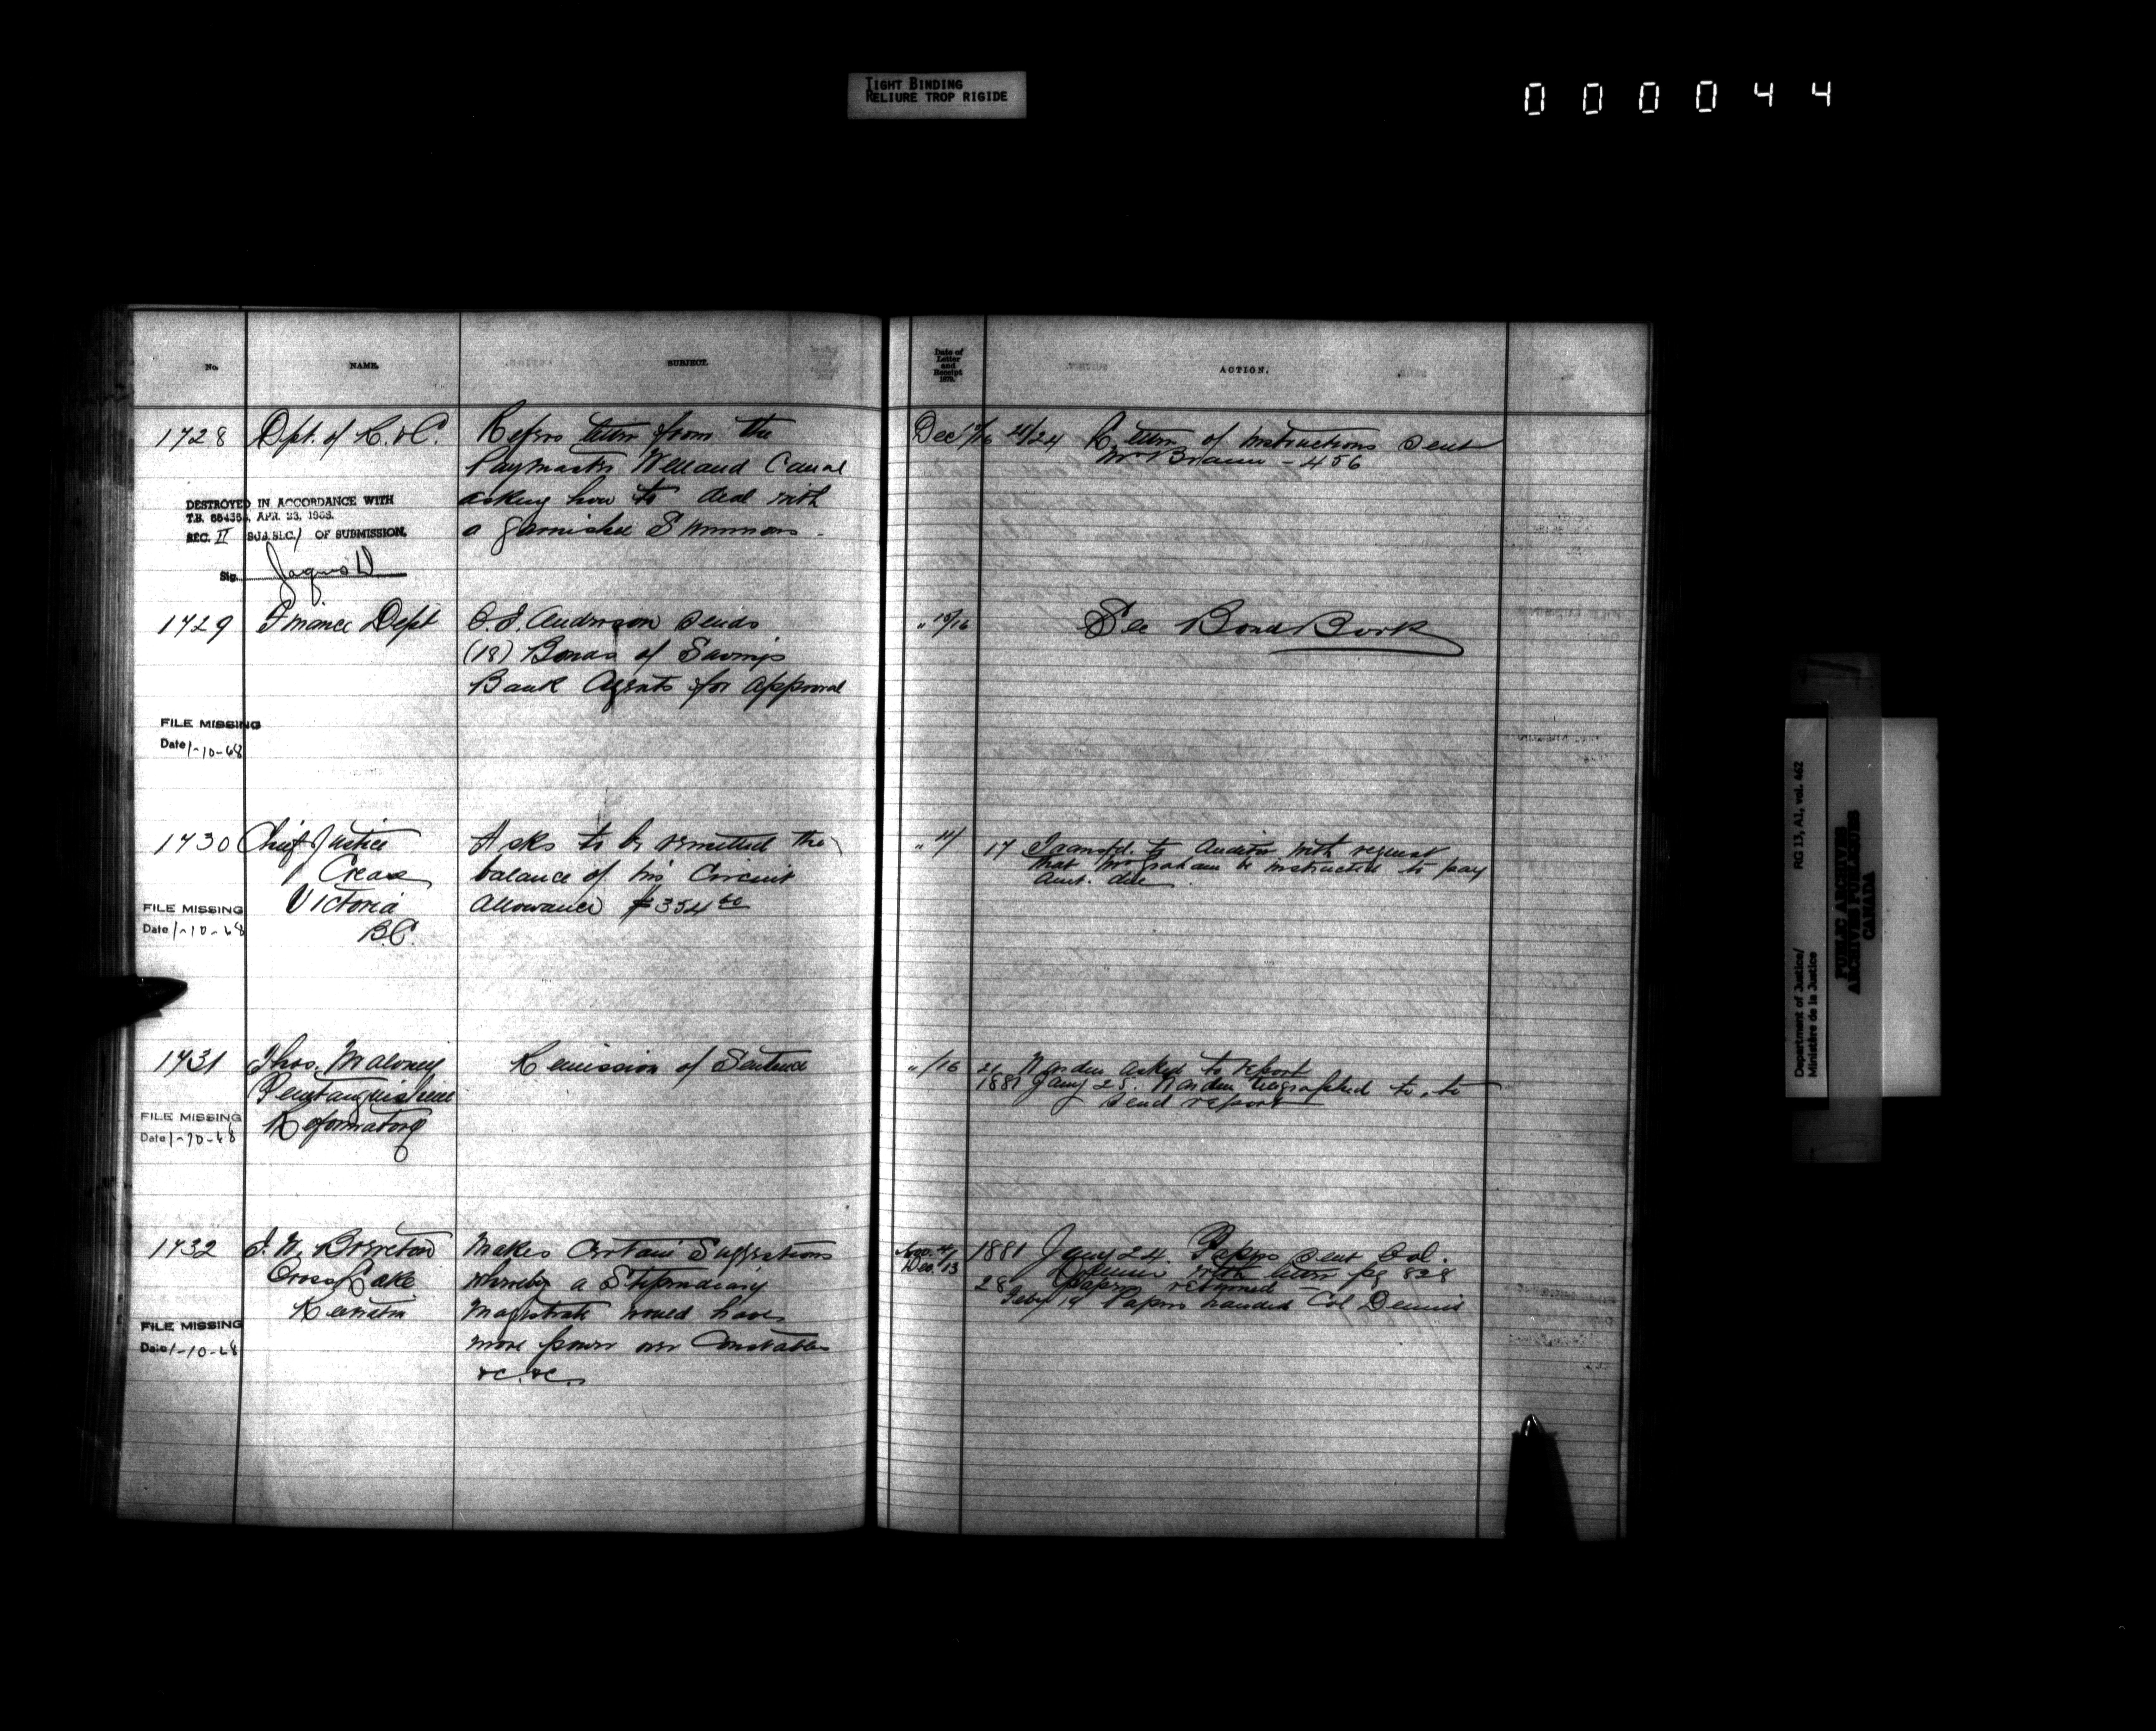 TIGHT BINDING
RELIURE TROP RIGIDE
000044
No.
NAME.
SUBJECT.
Date of
Letter
and
Receipt
ACTION.
1728
Dpt. of R. & C.
Refers letter from the
Paymaster Welland Canal
asking how to deal with
a garnishee Summons.
Dec 24 Letter of instructions sent
Mr Braun - 456
DESTROYED IN ACCORDANCE WITH
T.B. APR. 23,
SEC. II SUB.SEC. 1 OF SUBMISSION.
Sig.
1729
Finance Dept
Anderson sends
(18) Bonds of Savings
Bank Agents for approval
" 15/16
See Bond Book
FILE MISSING
Date 1-10-68
1730
Chief Justice
Crease
Victoria
B.C.
Asks to be remitted the
balance of his Circuit
Allowance $354
17 Transfd. to Auditor with request
that Mr Graham be instructed to pay
amt. due.
FILE MISSING
Date 1-10-68
1731
Thos. Maloney
Penetanguishene
Reformatory
Remission of Sentence
" /16
21 Warden asked to report
1881 Jany 25. Warden telegraphed to, to
send report
FILE MISSING
Date 1-10-68
1732
Brereton
Cross Lake
Keewatin
Makes Certain Suggestions
whereby a Stipendiary
Magistrate would have
more power over Constables
&c. &c.
Dec. 13
1881 Jany 24. Papers sent Col.
Dennis with letter pg 828
28 Papers returned
Feby 19 Papers handed Col Dennis
FILE MISSING
Date 1-10-68
Department of Justice/
Ministère de la Justice
RG 13, A1, vol. 462
PUBLIC ARCHIVES
ARCHIVES PUBLIQUES
CANADA